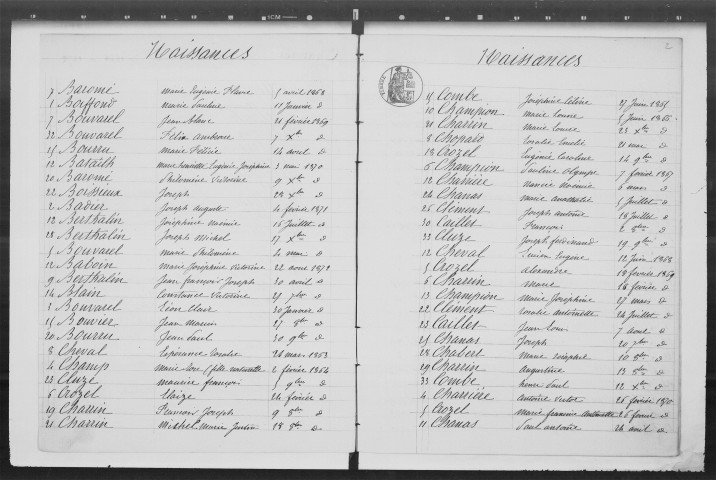 Naissances
7 Baromé Marie Eugénie Flavie 5 avril 1868
1 Boffond Marie Pauline 11 Janvier d
7 Bouvarel Jean 21 février 1869
32 Bouvarel Félix Ambroise 7 Xbre d
25 Bourru Marie Félicie 14 avril d
12 Marie Henriette Eugénie Joséphine 3 mai 1870
20 Baromé Philomène Victorine 9 Xbre d
22 Joseph 28 Xbre d
2 Badier Joseph Auguste 4 février 1871
12 Berthalin Joséphine Noémie 16 Juillet d
28 Berthalin Joseph Michel 17 Xbre d
5 Bouvarel Marie Philomène 4 mai d
12 Baboin Marie Joséphine Victorine 22 aout 1872
9 Berthalin Jean François Joseph 30 avril d
14 Blain Constance Victorine 27 7bre d
3 Bouvarel Léon Clair 30 Janvier d
15 Bouvier Jean Marius 27 8bre d
20 Bourru Jean Paul 30 9bre d
8 Cheval Espérance Coralie 26 mars 1863
4 Champ Marie Lou (fille naturelle) 2 février 1864
23 Cluze Maurice François 5 9bre d
6 Crozel Elaize 24 février d
19 Charrin François Joseph 9 8bre d
21 Charrin Michel Marie Justin 18 8bre d
Naissances
2
15 Combe Joséphine Céline 27 Juin 1865
10 Champion Marie Louise 5 Juin 1866
21 Charrin Marie Louise 23 Xbre d
8 Chopard Coralie 21 mai d
18 Crozel Eugénie Caroline 14 9bre d
6 Champion Pauline Olympe 7 février 1867
12 Charrière Marie Noémie 6 mars d
24 Chanas Marie 5 Juillet d
25 Clément Joseph Antoine 18 Juillet d
30 Caillet François 2 8bre d
33 Cluze Joseph Ferdinand 19 9bre d
12 Cheval Lucien Eugène 12 Juin 1868
5 Crozel Alexandre 18 février 1869
6 Charrin Marie 16 février d
13 Champion Marie Joséphine 27 mars d
22 Clément Coralie Antoinette 24 Juillet d
23 Caillet Jean Louis 7 aout d
25 Chanas Joseph 20 7bre d
28 Chabert Marie Séraphie 10 8bre d
29 Charrin Augustine 13 8bre d
33 Combe Henri Paul 12 Xbre d
4 Charrière Antoine Victor 25 février 1870
5 Crozel Marie Francine Antoinette 26 février d
11 Chanas Paul Antoine 24 avril d